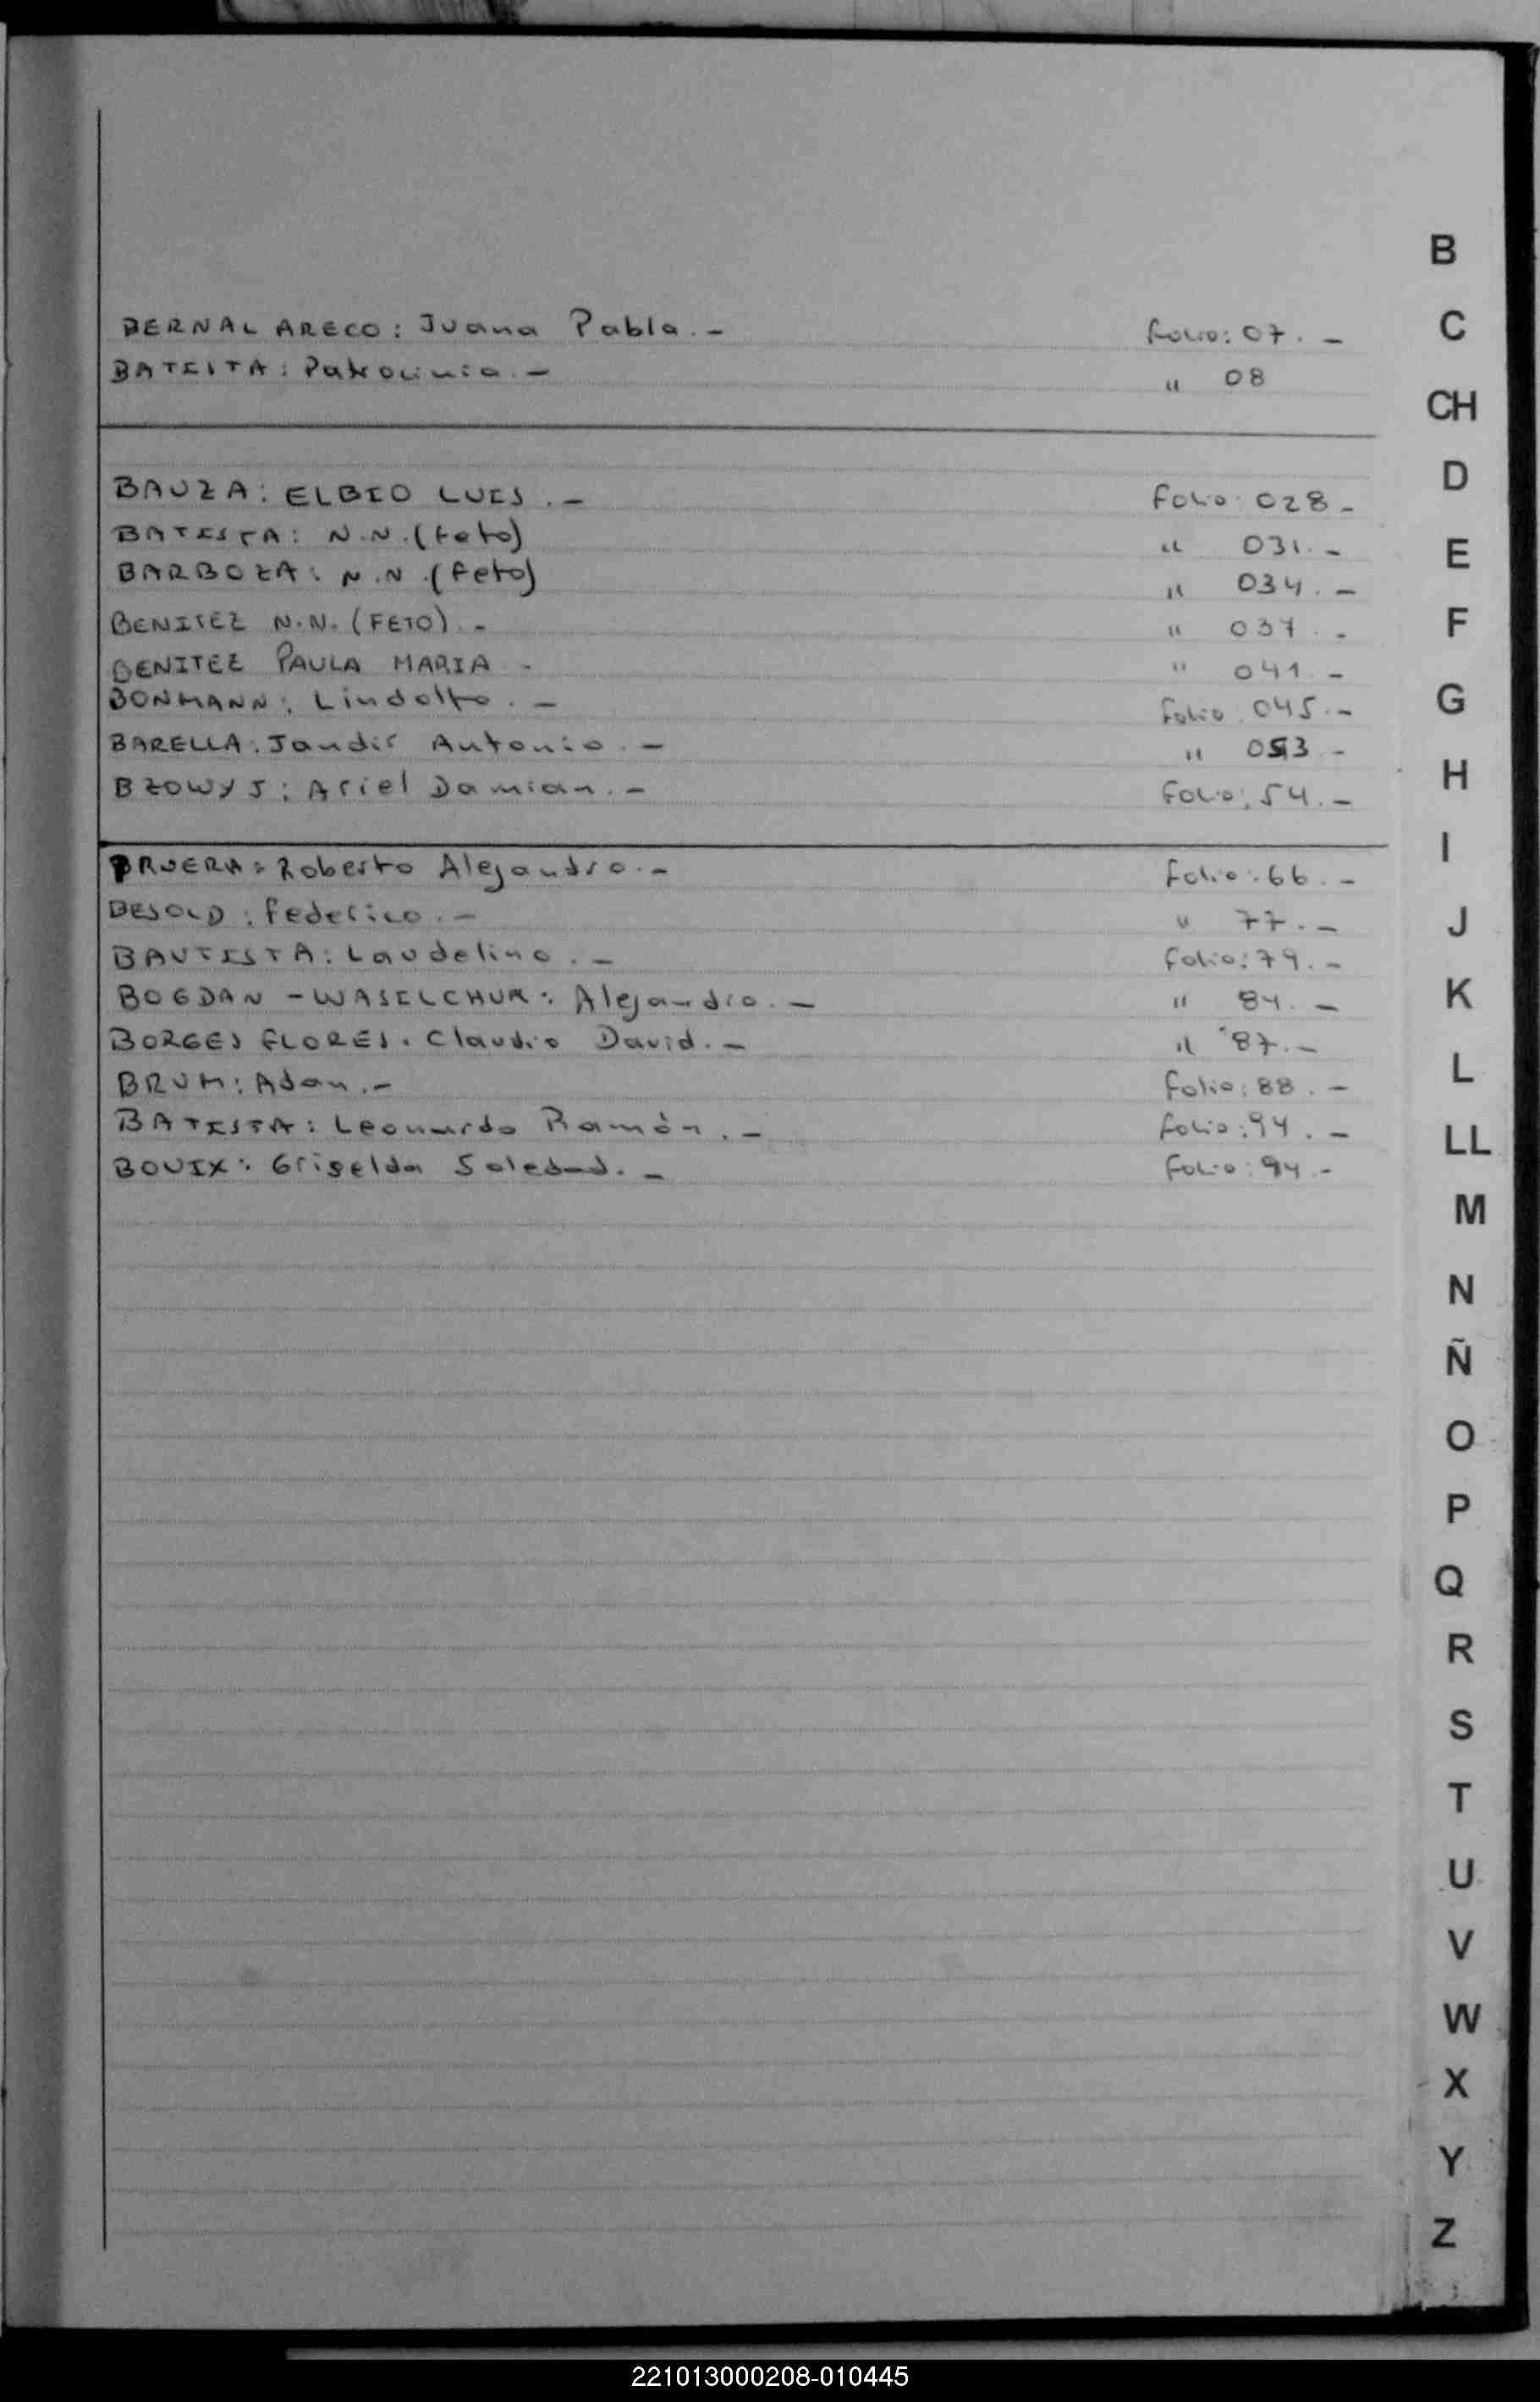 BERNAL ARECO: Juana Pabla.- Folio: 07.-
BATISTA: Patrocinia.- " 08
BAUZA: ELBIO LUIS.- Folio: 028-
BATISTA: N.N. (Feto) " 031.-
BARBOZA: N.N. (Feto) " 034.-
BENITEZ N.N. (FETO).- " 037.-
BENITEZ PAULA MARIA.- " 041.-
BONMANN: Lindolfo.- Folio 045.-
BARELLA: Jandir Antonio.- " 053-
BZOWYJ: Ariel Damian.- Folio: 54.-
BRUERA: Roberto Alejandro.- Folio: 66.-
BESOLD: Federico.- " 77.-
BAUTISTA: Laudelino.- Folio: 79.-
BOGDAN - WASILCHUK: Alejandro.- " 84.-
BORGES FLORES: Claudio David.- " 87.-
BRUM: Adan.- Folio: 88.-
BATISTA: Leonardo Ramón.- Folio: 94.-
BOUIX: Griselda Soledad.- Folio: 94.-
B
C
CH
D
E
F
G
H
I
J
K
L
LL
M
N
Ñ
O
P
Q
R
S
T
U
V
W
X
Y
Z
221013000208-010445